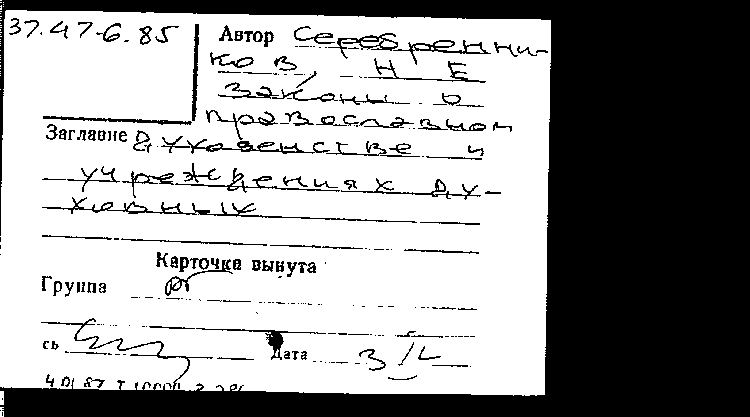 37.47-6.85
Автор Серебренни-
ков, Н Е
Законы о
православном
Заглавие духовенстве и
учреждениях ду-
ховных
Карточка вынута
Группа
сь
Дата 3/